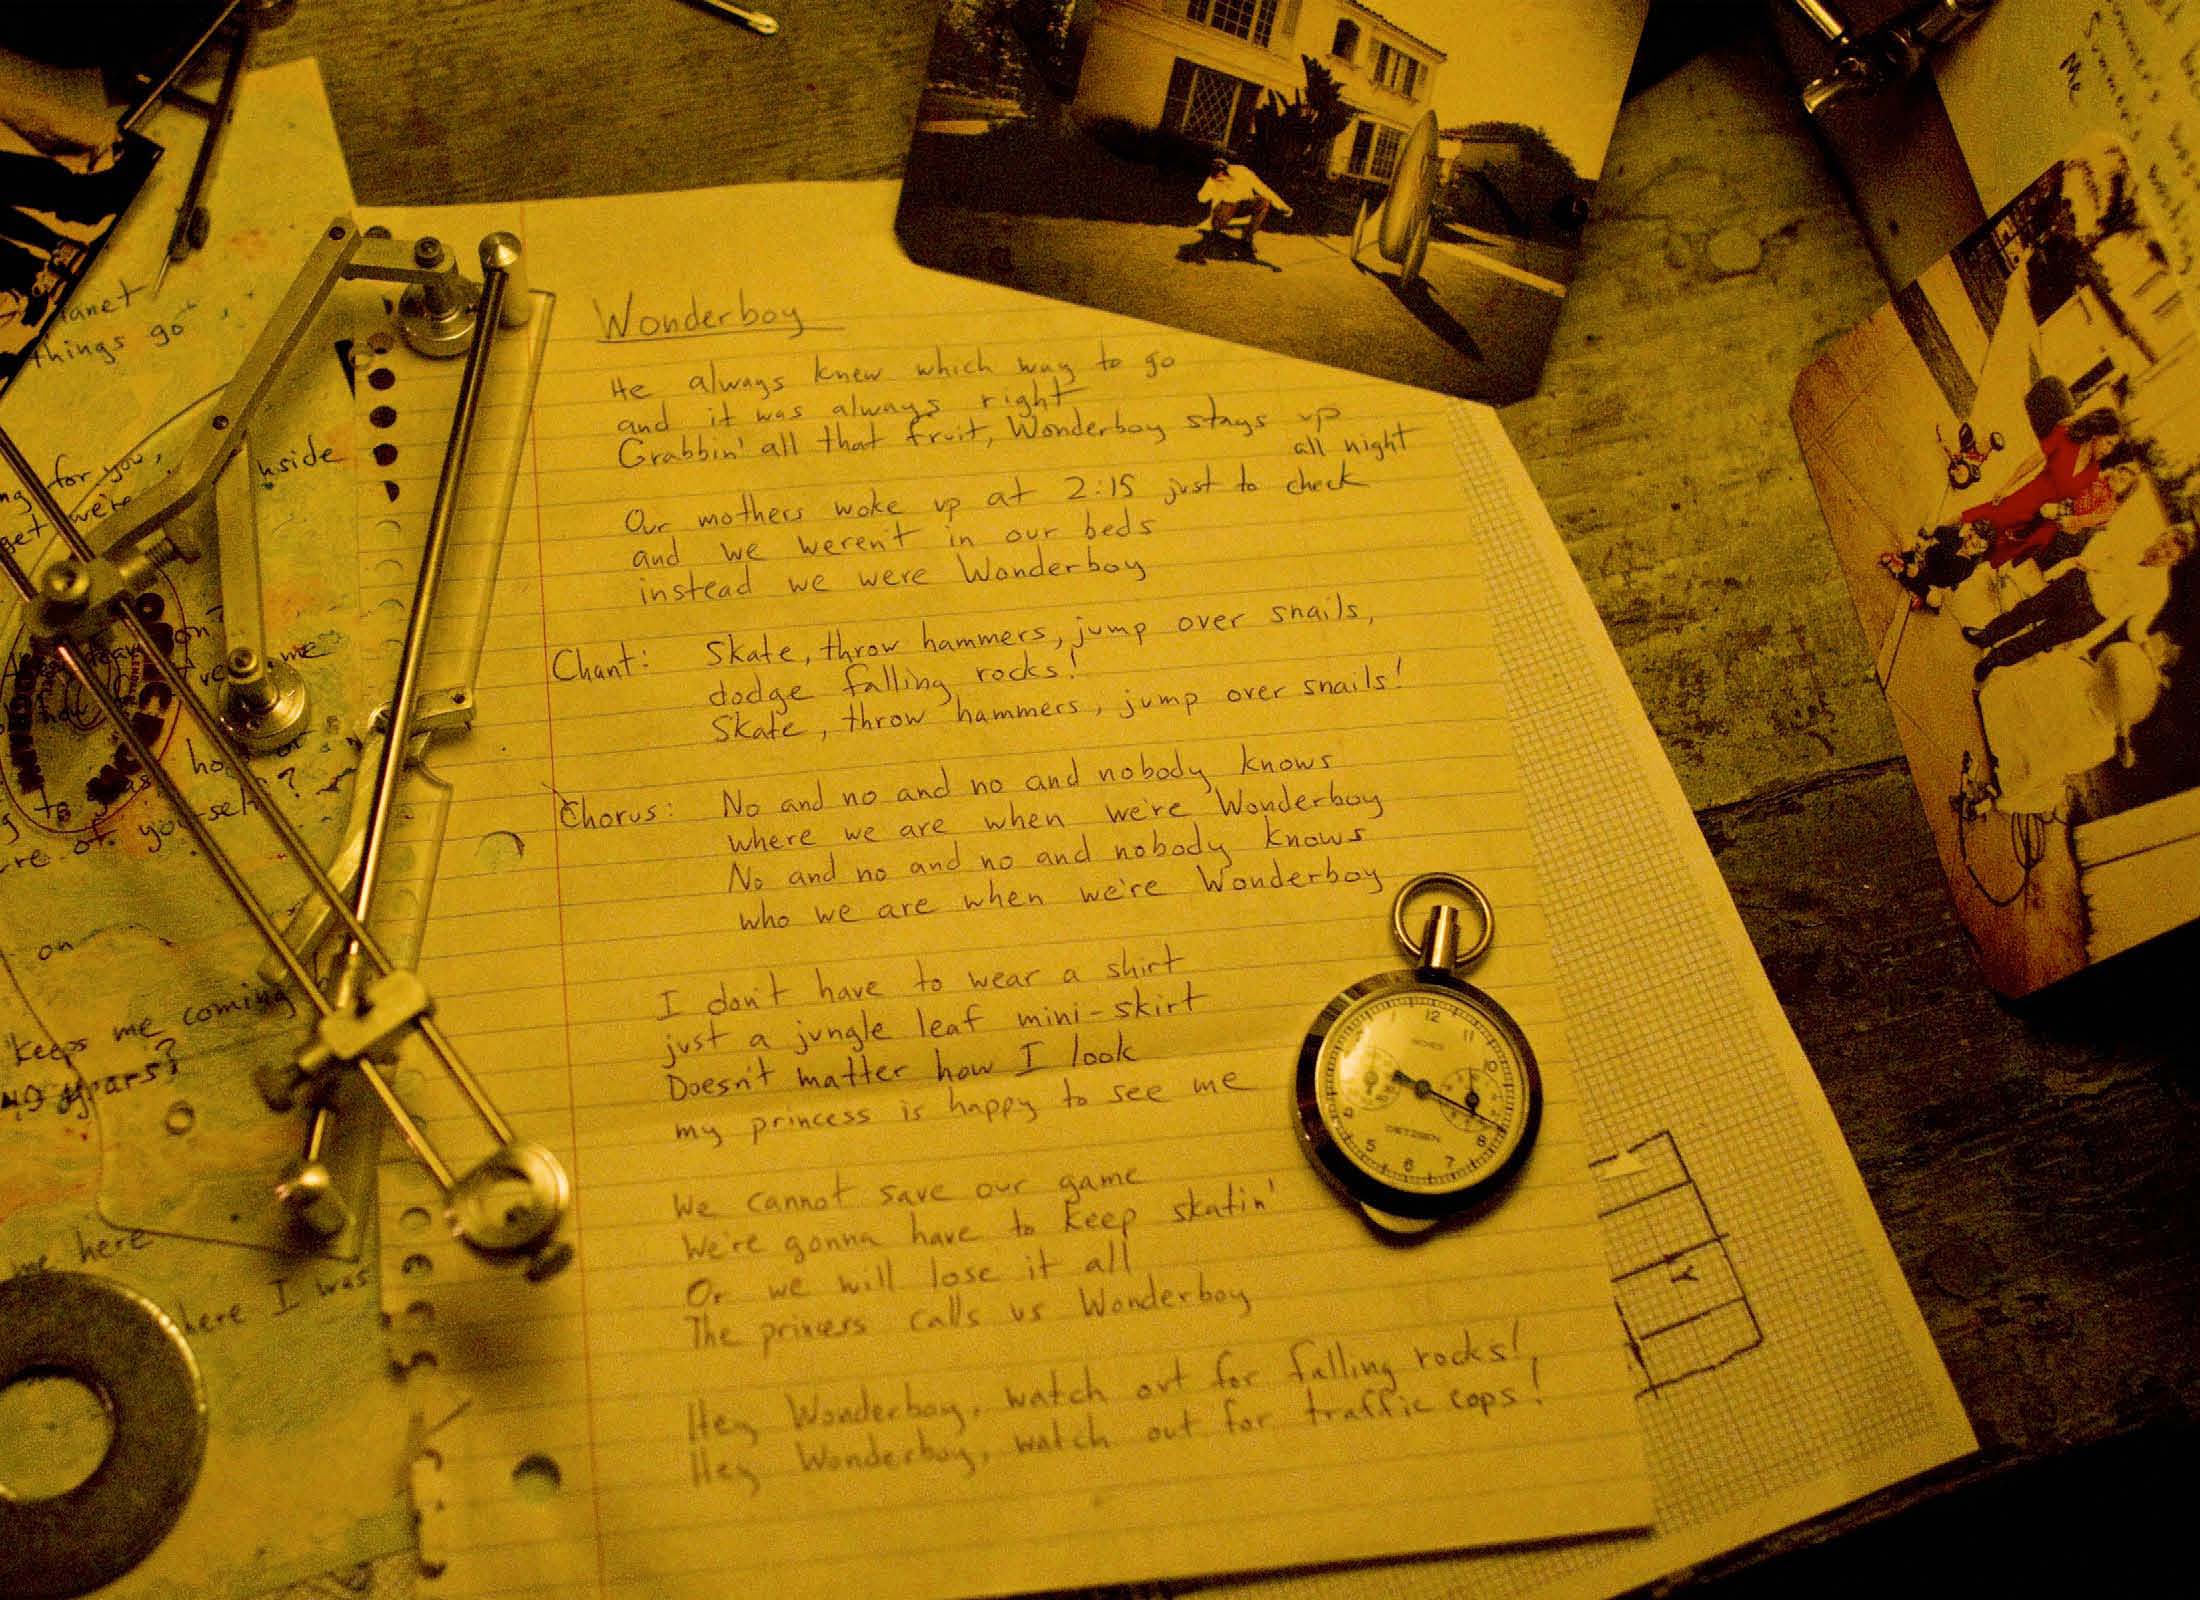 Wonderboy
He always knew which way to go
and it was always right
Grabbin' all that fruit, Wonderboy stays up
all night
Our mothers woke up at 2:15 just to check
and we weren't in our beds
instead we were Wonderboy
Chant: Skate, throw hammers, jump over snails,
dodge falling rocks!
Skate, throw hammers, jump over snails!
Chorus: No and no and no and nobody knows
where we are when we're Wonderboy
No and no and no and nobody knows
who we are when we're Wonderboy
I don't have to wear a shirt
just a jungle leaf mini-skirt
Doesn't matter how I look
my princess is happy to see me
We cannot save our game
We're gonna have to keep skatin'
Or we will lose it all
The princess calls us Wonderboy
Hey Wonderboy, watch out for falling rocks!
Hey Wonderboy, watch out for traffic cops!
things go
for you,
inside
get we're
me
of yourself?
on
keeps me coming
years?
me here
here I was
12
11
10
8
7
6
5
Y
summer's
Me